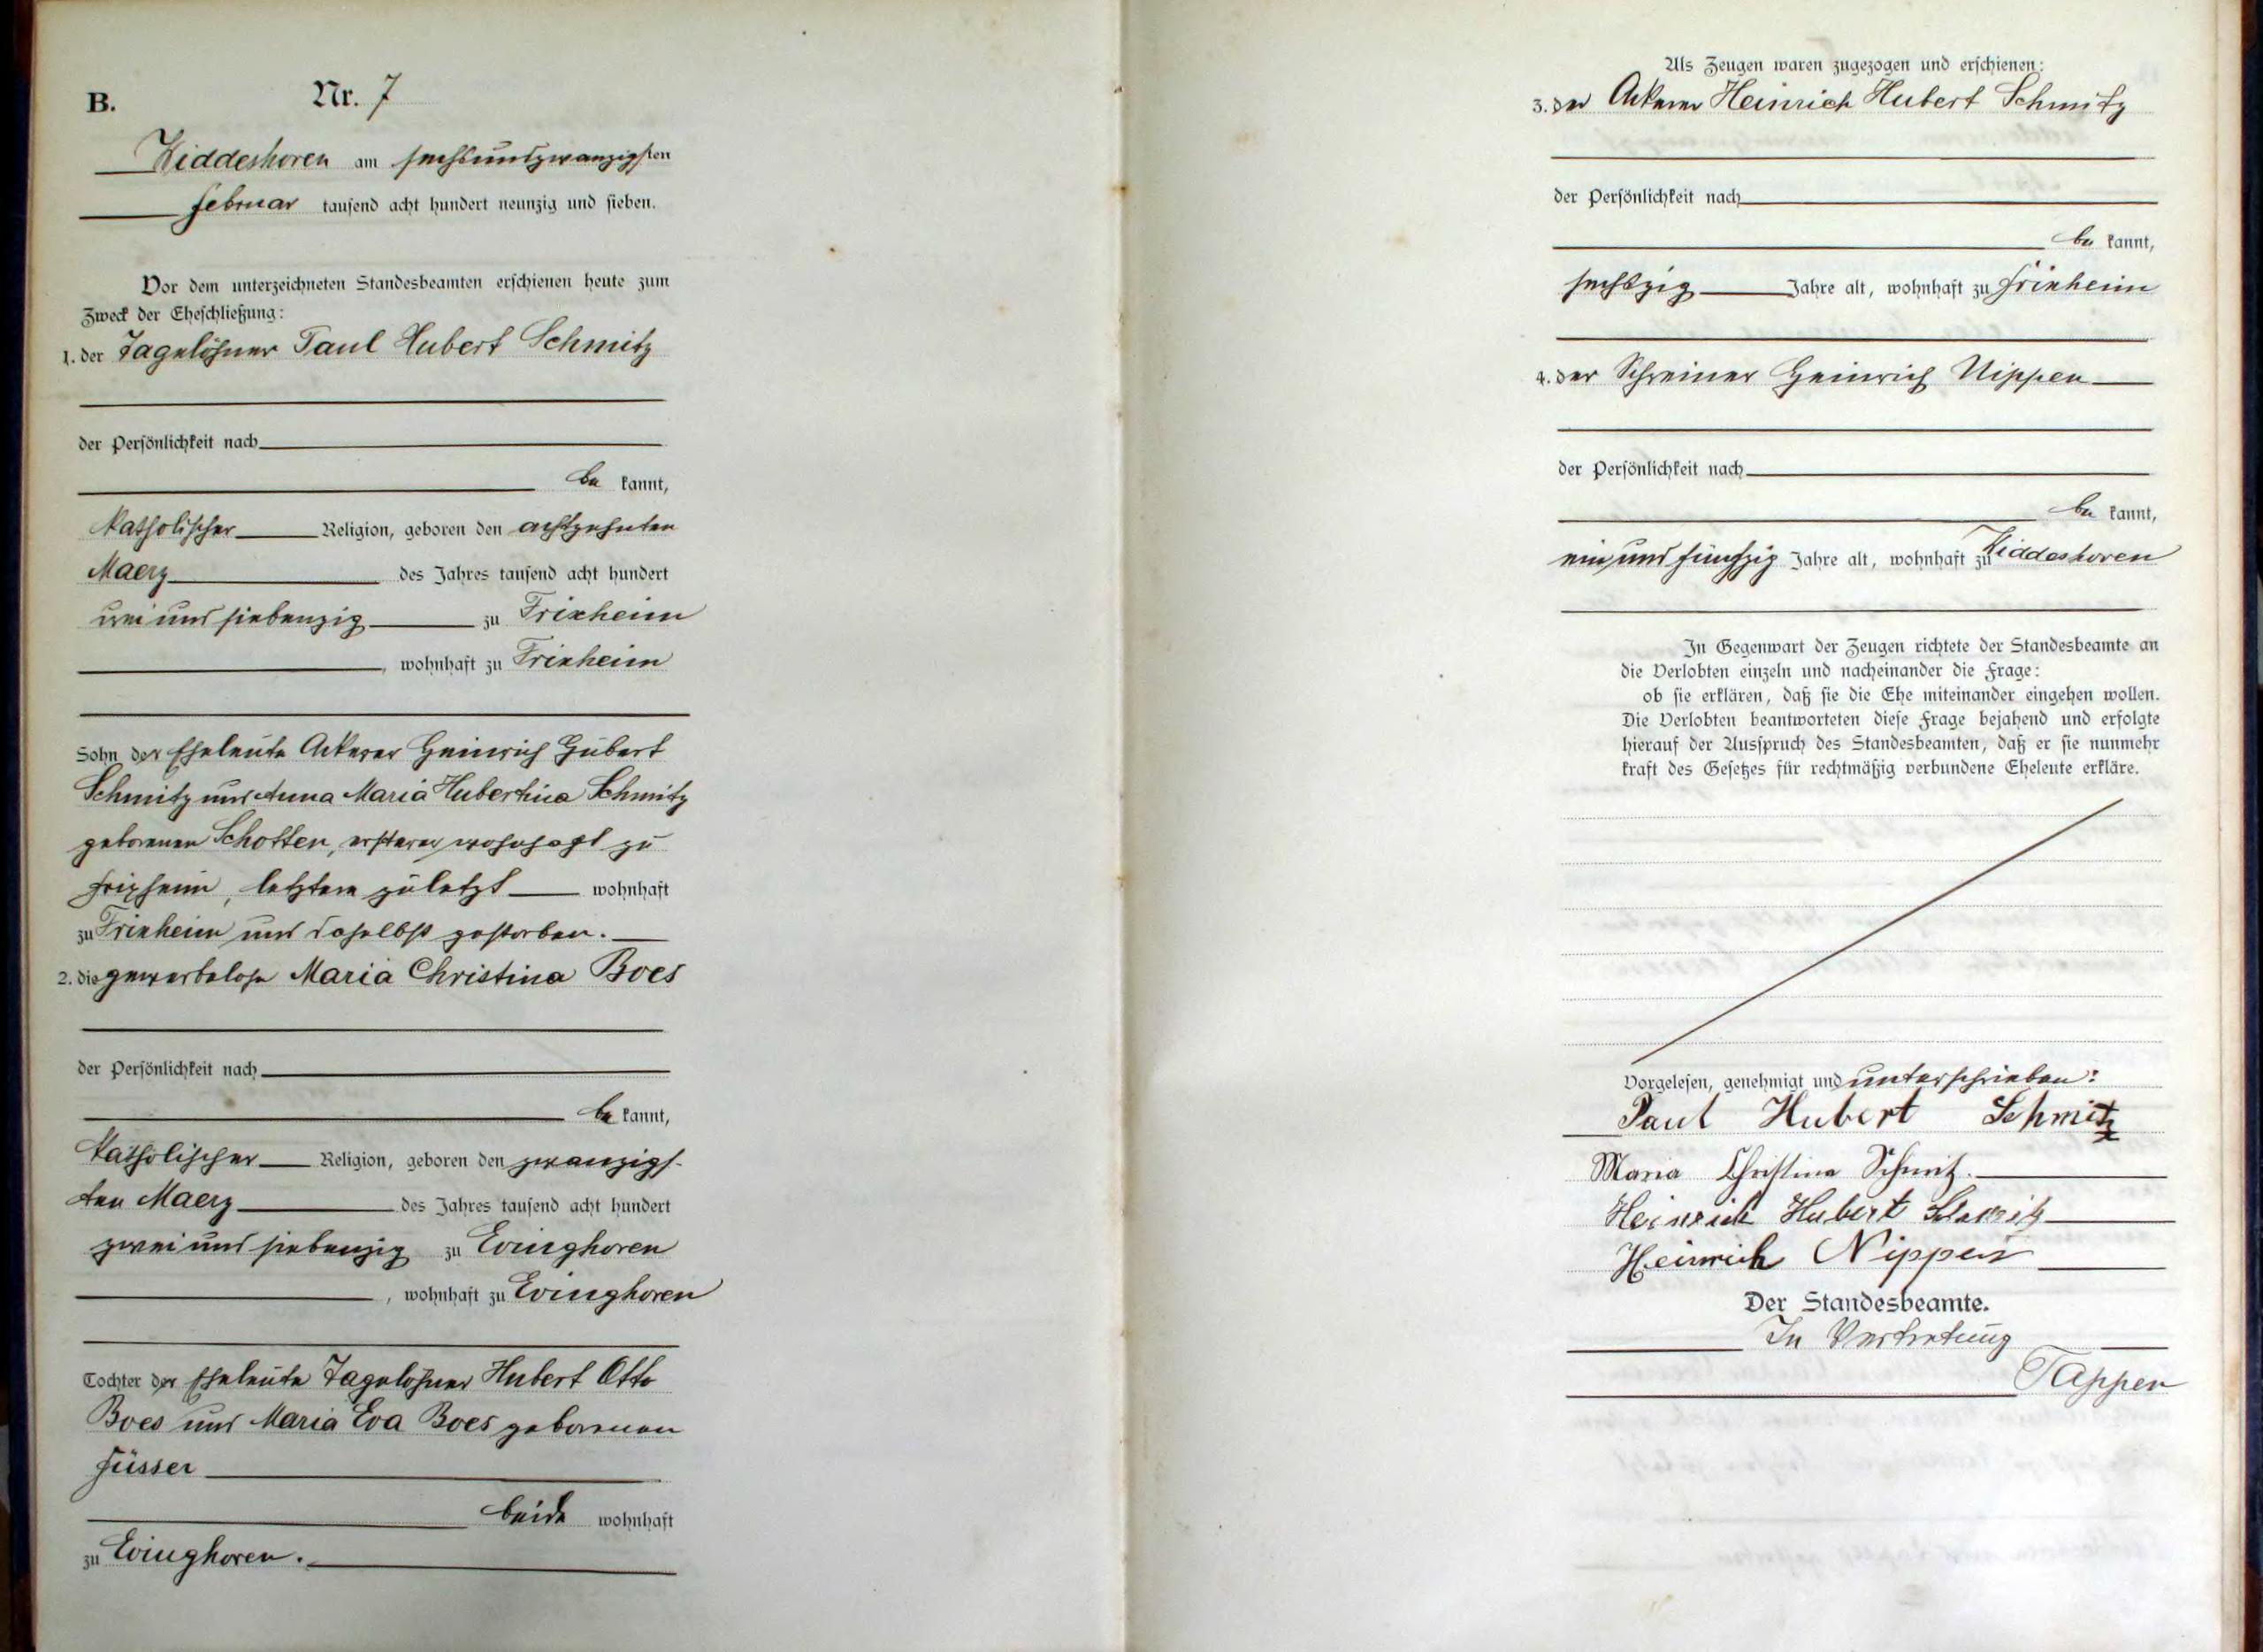 B.
Nr. 7
Widdeshoven am sechsundzwanzigsten
Februar tausend acht hundert neunzig und sieben.
Vor dem unterzeichneten Standesbeamten erschienen heute zum
Zweck der Eheschließung:
1. der Tagelöhner Paul Hubert Schmitz
der Persönlichkeit nach
be kannt,
katholischer Religion, geboren den achtzehnten
Maerz des Jahres tausend acht hundert
und siebenzig zu Frixheim
, wohnhaft zu Frixheim
Sohn der Eheleute Ackerer Heinrich Hubert
Schmitz und Anna Maria Hubertina Schmitz
geborenen Schotten, ersterer wohnhaft zu
Frixheim, letztere zuletzt wohnhaft
zu Frixheim und daselbst gestorben.
2. die gewerbelose Maria Christina Boes
der Persönlichkeit nach
be kannt,
katholischer Religion, geboren den zwanzigs-
ten Maerz des Jahres tausend acht hundert
zwei und siebenzig zu Evinghoven
, wohnhaft zu Evinghoven
Tochter der Eheleute Tagelöhner Hubert Otto
Boes und Maria Eva Boes geborenen
Füsser
beide wohnhaft
zu Evinghoven.
Als Zeugen waren zugezogen und erschienen:
3. der Ackerer Heinrich Hubert Schmitz
der Persönlichkeit nach
be kannt,
sechszig Jahre alt, wohnhaft zu Frixheim
4. der Schreiner Heinrich Nippen
der Persönlichkeit nach
be kannt,
ein und fünfzig Jahre alt, wohnhaft zu Widdeshoven
In Gegenwart der Zeugen richtete der Standesbeamte an
die Verlobten einzeln und nacheinander die Frage:
ob sie erklären, daß sie die Ehe miteinander eingehen wollen.
Die Verlobten beantworteten diese Frage bejahend und erfolgte
hierauf der Ausspruch des Standesbeamten, daß er sie nunmehr
kraft des Gesetzes für rechtmäßig verbundene Eheleute erkläre.
Vorgelesen, genehmigt und unterschrieben:
Paul Hubert Schmitz
Maria Christina Schmitz.
Heinrich Hubert Schmitz
Heinrich Nippen
Der Standesbeamte.
In Vertretung
Tappen